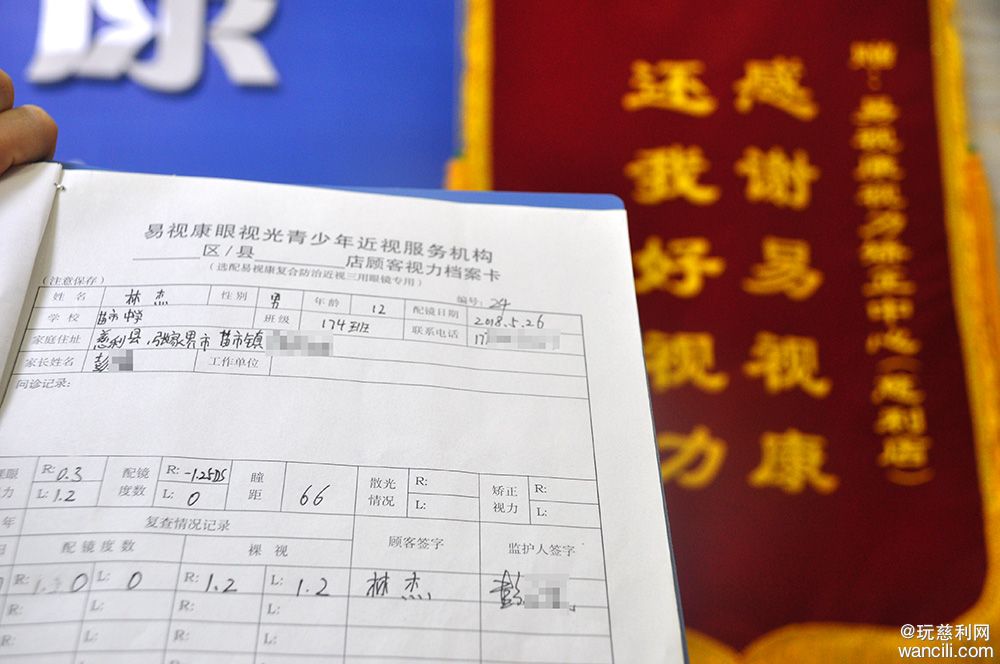 康
感谢易视康
还我好视力
赠：易视康视力矫正中心（慈利店）
易视康眼视光青少年近视服务机构
区/县 店顾客视力档案卡
（选配易视康复合防治近视三用眼镜专用）
（注意保存） 编号：24
姓名 林杰 性别 男 年龄 12 配镜日期 2018.5.26
学校 苗市中学 班级 174班 联系电话 17
家庭住址 慈利县 张家界市 苗市镇
家长姓名 彭 工作单位
问诊记录：
裸眼视力 R: 0.3 L: 1.2 配镜度数 R: -1.25DS L: 0 瞳距 66 散光情况 R: L: 矫正视力 R: L:
年 复查情况记录 顾客签字 监护人签字
配镜度数 裸视
R: 0 L: 0 R: 1.2 L: 1.2 林杰 彭
R: L: R: L:
R: L: R: L:
@玩慈利网
wancili.com